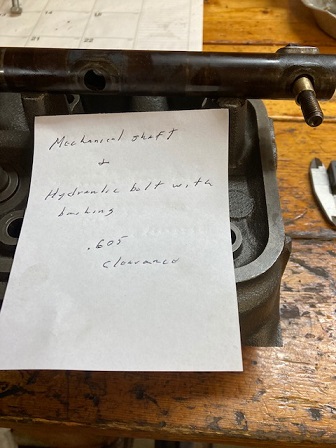 Mechanical shaft
&
Hydraulic bolt with
bushing
.605
clearance
21
22